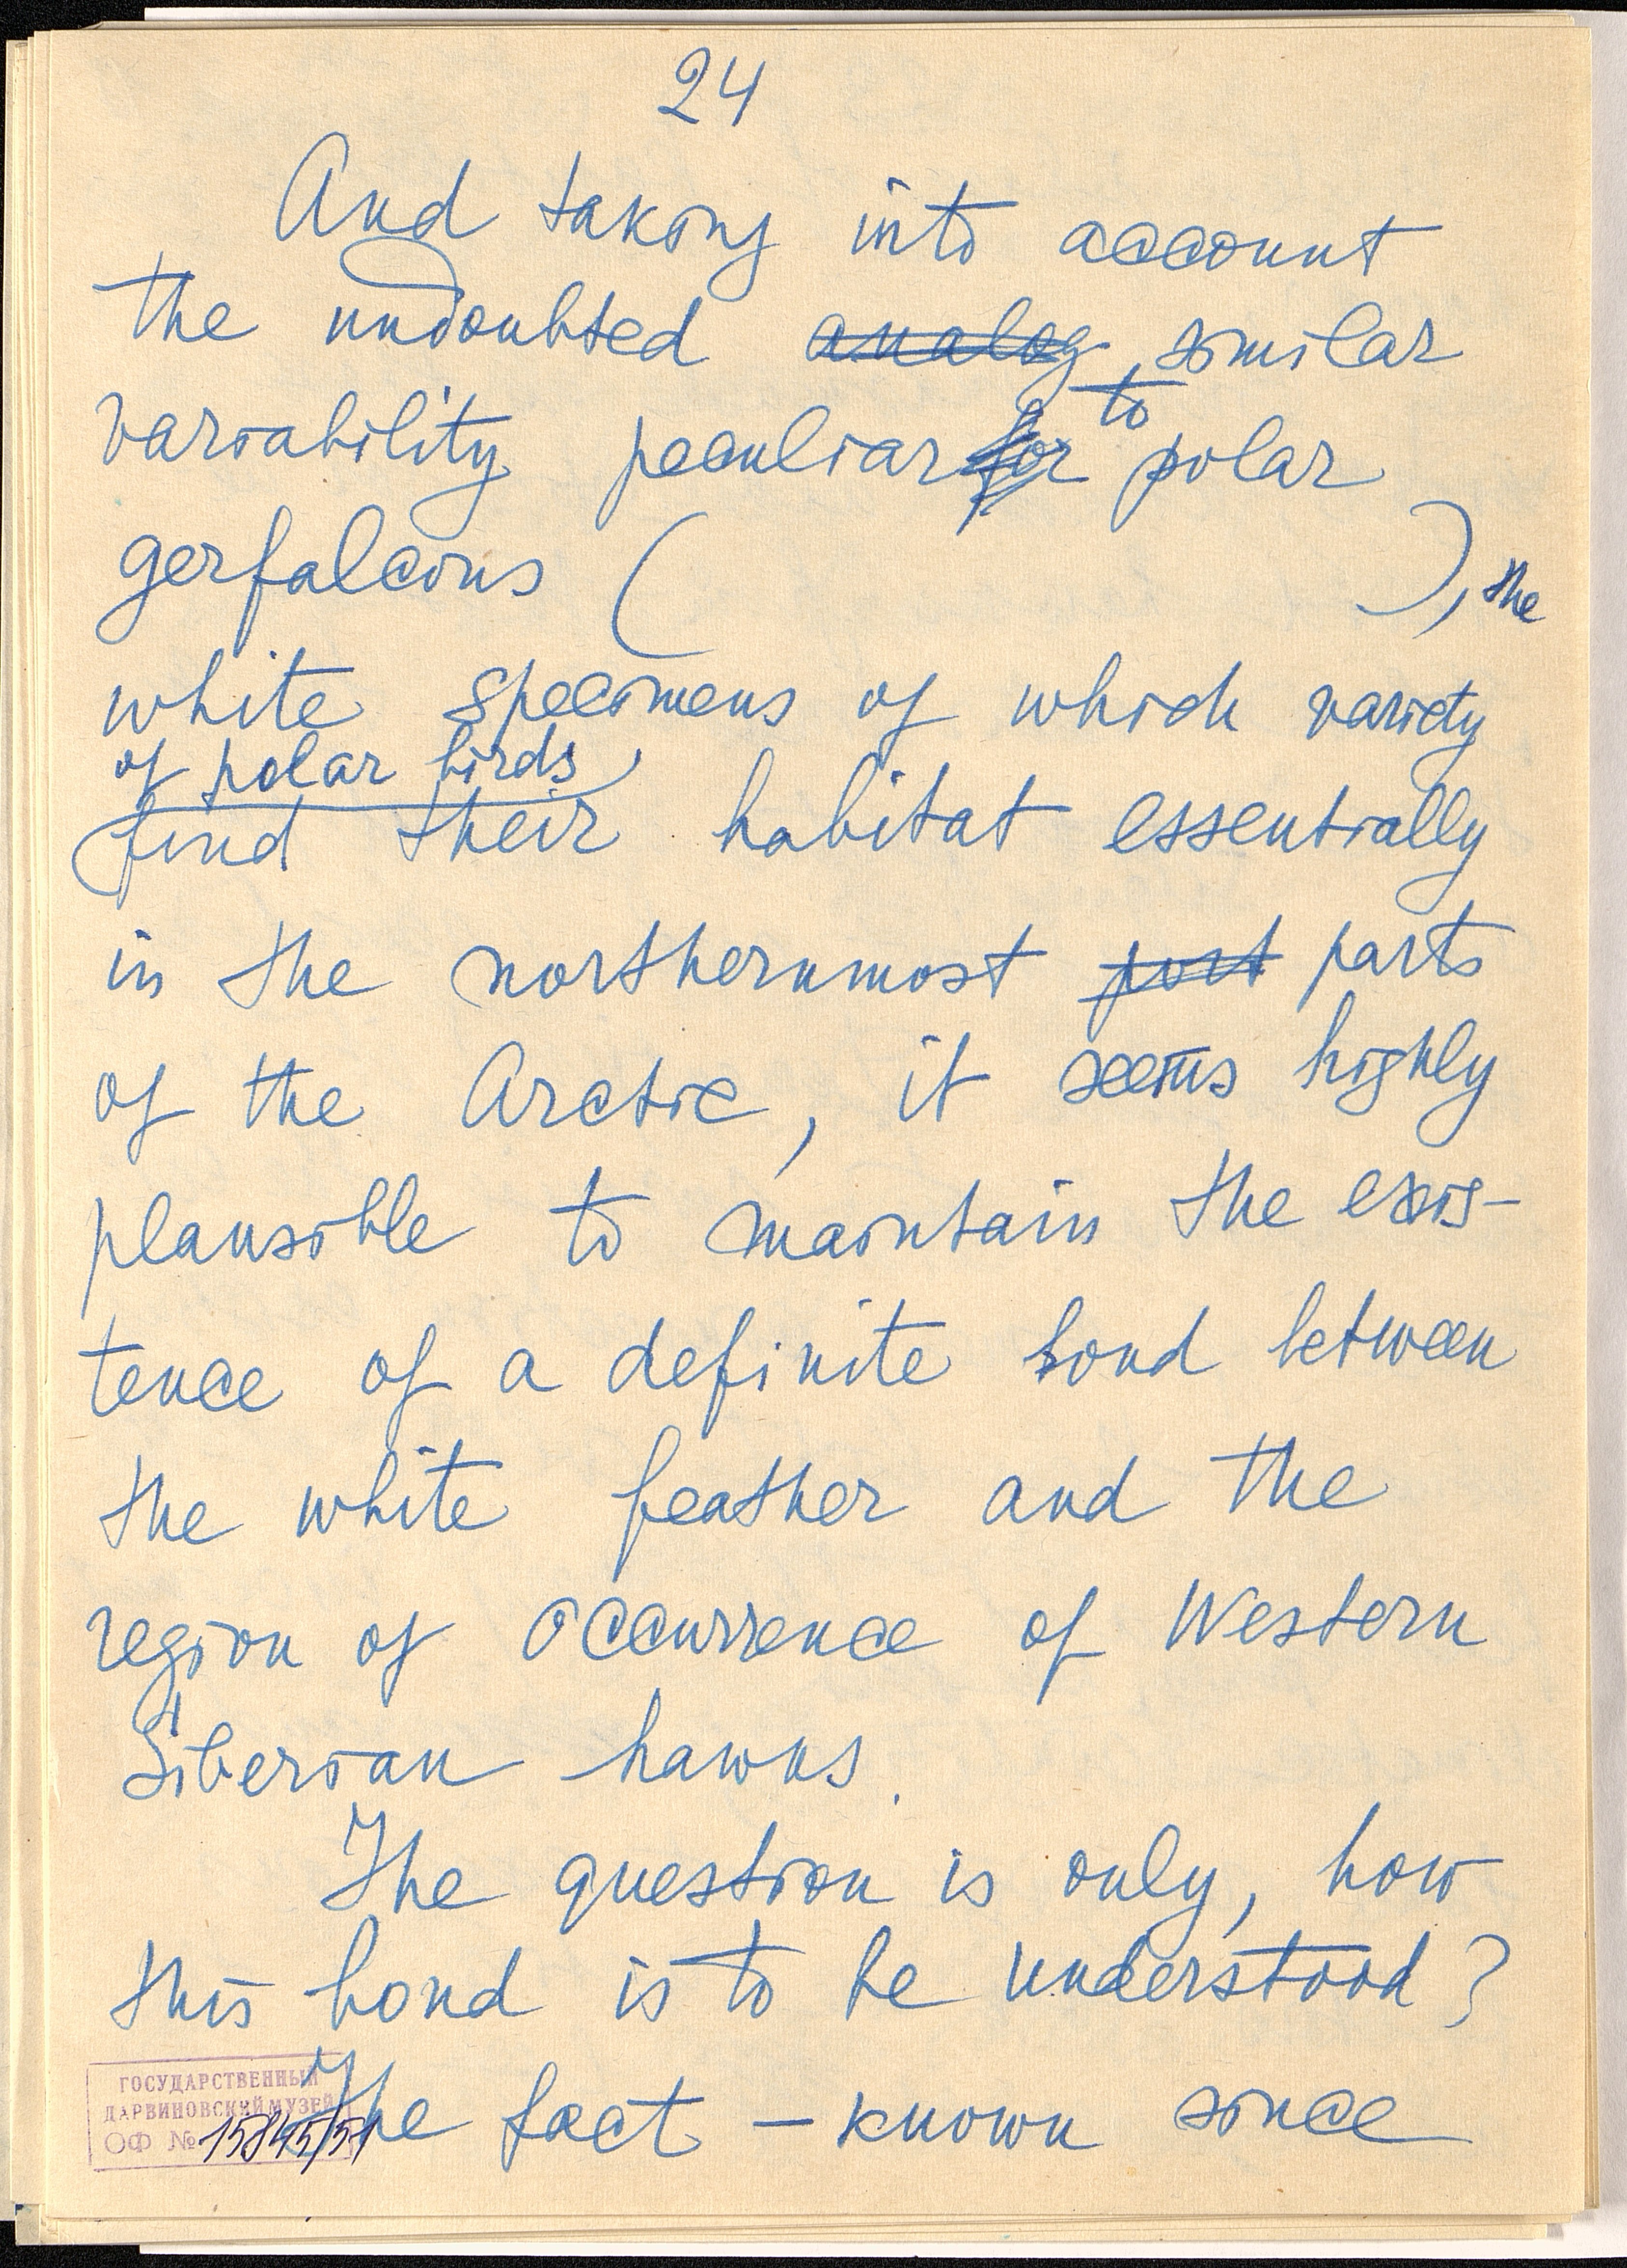 24
And taking into account
the undoubted analog, similar
variability peculiar for to polar
gerfalcons (                    ), the
white specimens of which variety
of polar birds
find their habitat essentially
in the northernmost port parts
of the Arctic, it seems highly
plausible to maintain the exis-
tence of a definite bond between
the white feather and the
region of occurrence of Western
Siberian hawks.
The question is only, how
this bond is to be understood?
The fact – known since
ГОСУДАРСТВЕННЫЙ
ДАРВИНОВСКИЙ МУЗЕЙ
ОФ № 15845/51